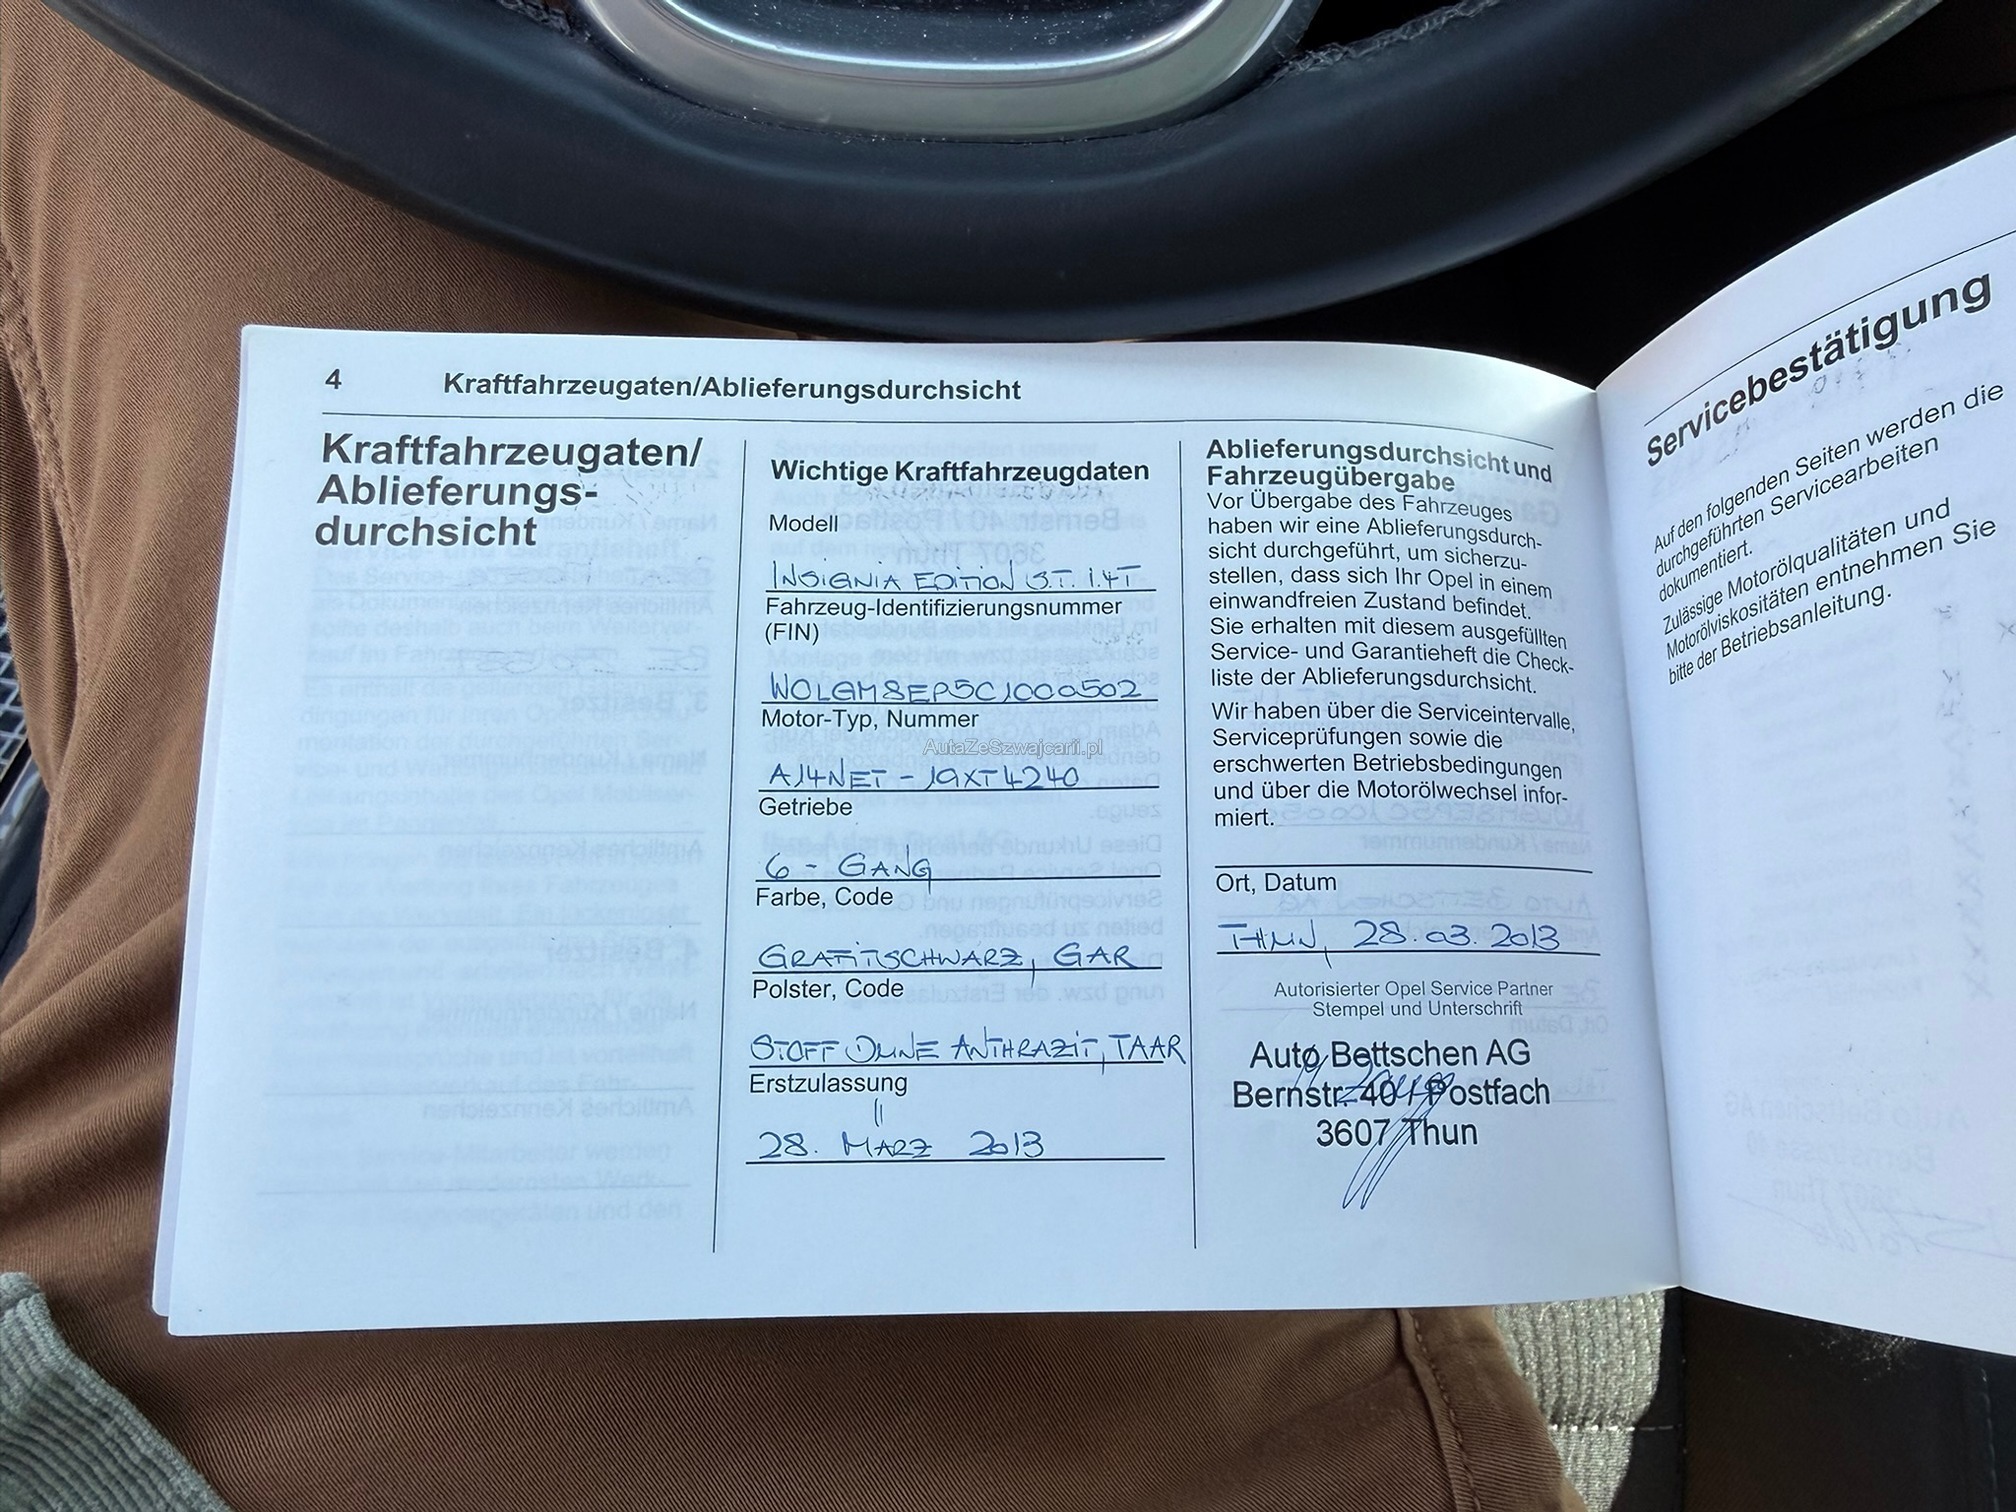 4
Kraftfahrzeugaten/Ablieferungsdurchsicht
Kraftfahrzeugaten/
Ablieferungs-
durchsicht
Wichtige Kraftfahrzeugdaten
Modell
INSIGNIA EDITION S.T. 1.4T
Fahrzeug-Identifizierungsnummer
(FIN)
WOLGM8EP5C1000502
Motor-Typ, Nummer
A14NET - 19XT4240
Getriebe
6 - GANG
Farbe, Code
GRAFITSCHWARZ, GAR
Polster, Code
STOFF DUNE ANTHRAZIT, TAAR
Erstzulassung
28. MÄRZ 2013
Ablieferungsdurchsicht und
Fahrzeugübergabe
Vor Übergabe des Fahrzeuges
haben wir eine Ablieferungsdurch-
sicht durchgeführt, um sicherzu-
stellen, dass sich Ihr Opel in einem
einwandfreien Zustand befindet.
Sie erhalten mit diesem ausgefüllten
Service- und Garantieheft die Check-
liste der Ablieferungsdurchsicht.
Wir haben über die Serviceintervalle,
Serviceprüfungen sowie die
erschwerten Betriebsbedingungen
und über die Motorölwechsel infor-
miert.
Ort, Datum
THUN, 28.03.2013
Autorisierter Opel Service Partner
Stempel und Unterschrift
Auto Bettschen AG
Bernstr. 40 / Postfach
3607 Thun
Servicebestätigung
Auf den folgenden Seiten werden die
durchgeführten Servicearbeiten
dokumentiert.
Zulässige Motorölqualitäten und
Motorölviskositäten entnehmen Sie
bitte der Betriebsanleitung.
AutaZeSzwajcarii.pl